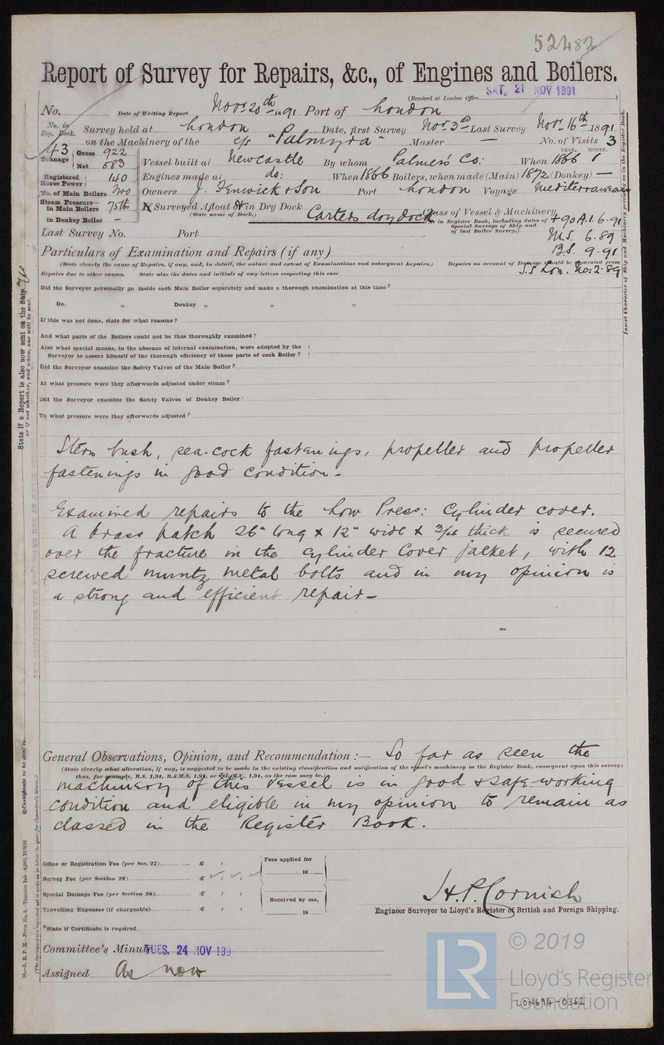 52482
Report of Survey for Repairs, &c., of Engines and Boilers.
(Received at London Office SAT. 21 NOV 1891
No. Date of Writing Report Novr 20th 1891 Port of London
No. in Reg. Book. Survey held at London Date, first Survey Nov. 3rd Last Survey Novr 16th 1891
on the Machinery of the s/s "Palmyra" Master — No. of Visits 3
43
Tonnage Gross 922 Net 583
Vessel built at Newcastle By whom Palmers Co: When 1866
Registered Horse Power 140
Engines made at do: When 1866 Boilers, when made (Main) 1872 (Donkey) —
No. of Main Boilers Two
Owners J. Fenwick & Son Port London Voyage Mediterranean
Steam Pressure— in Main Boilers 75lb
If Surveyed Afloat or in Dry Dock
(State name of Dock.) Carters dry dock
Class of Vessel & Machinery
in Register Book, including dates of Special Surveys of Ship and of last Boiler Survey.) +90A1 6.91
in Donkey Boiler —
Last Survey No. Port
M.S. 6.89
B.S. 9.91
S.S Lon. No: 2-89
Particulars of Examination and Repairs (if any)
Repairs due to other causes. State also the dates and initials of any letters respecting this case
Did the Surveyor personally go inside each Main Boiler separately and make a thorough examination at this time?
Do. " Donkey " " "
If this was not done, state for what reasons?
And what parts of the Boilers could not be thus thoroughly examined?
Also what special means, in the absence of internal examination, were adopted by the
Surveyor to assure himself of the thorough efficiency of those parts of each Boiler?
Did the Surveyor examine the Safety Valves of the Main Boiler?
At what pressure were they afterwards adjusted under steam?
Did the Surveyor examine the Safety Valves of Donkey Boiler?
To what pressure were they afterwards adjusted?
Stern bush, sea-cock fastenings, propeller and propeller
fastenings in good condition.
Examined repairs to the Low Press: Cylinder cover.
A brass patch 26" long x 12" wide x 3/4 thick is secured
over the fracture in the cylinder Cover jacket, with 12
screwed muntz metal bolts and in my opinion is
a strong and efficient repair—
General Observations, Opinion, and Recommendation:— So far as seen the
(State clearly what alteration, if any, is suggested to be made in the existing classification and notification of the vessel's machinery in the Register Book, consequent upon this survey;
machinery of this Vessel is in good & safe working
condition and eligible in my opinion to remain as
classed in the Register Book.
Office or Registration Fee (per Sec. 27) £
Fees applied for
18
Survey Fee (per Section 28) £
Special Damage Fee (per Section 28) £
Received by me,
18
Travelling Expenses (if chargeable) £
H.P. Cornish
Engineer Surveyor to Lloyd's Register of British and Foreign Shipping.
*State if Certificate is required
Committee's Minute TUES. 24 NOV 189
Assigned As now
LR © 2019
Lloyd's Register
Foundation
LON696-0362